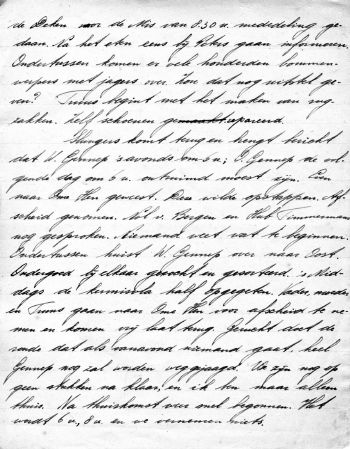 de Deken voor de Mis van 8.30 u. mededeling ge-
daan. Na het eten eens bij Peters gaan informeren.
Ondertussen komen er vele honderden bommen-
werpers met jagers over. Zou dat nog uitstel ge-
ven? Truus begint met het maken van rug-
zakken. Zelf schoenen gerepareerd.
komt terug en brengt bericht
dat W. Gennep 's avonds om 6 u; O. Gennep de vol-
gende dag om 6 u. ontruimd moest zijn. Even
naar Oma Hen geweest. Deze wilde opstappen. Af-
scheid genomen. Met v. Bergen en Timmermans
nog gesproken. Niemand weet wat te beginnen.
Ondertussen huist W. Gennep over naar Oost.
Ondergoed bij elkaar gezocht en gesorteerd. 's Mid-
dags de half opgegeten. Vader, moeder
en Truus gaan naar Oma Hen voor afscheid te ne-
men en komen vrij laat terug. Gerucht doet de
ronde dat als vanavond niemand gaat, heel
Gennep nog zal worden weggejaagd. We zijn nog op
geen stukken na klaar, en ik ben maar alleen
thuis. Na thuiskomst weer snel begonnen. Het
wordt 6 u, 8 u en we vernemen niets.